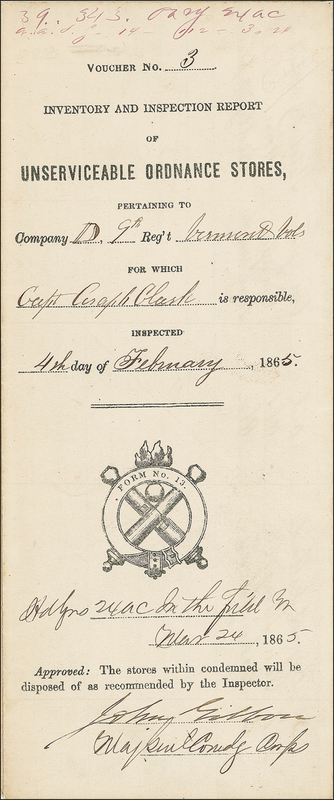 39. 343. 24 AC
VOUCHER No. 3
INVENTORY AND INSPECTION REPORT
OF
UNSERVICEABLE ORDNANCE STORES,
PERTAINING TO
Company D, 9th Reg't Vermont Vols
FOR WHICH
Capt Asaph Clark is responsible,
INSPECTED
4th day of February, 1865.
FORM NO. 13.
Hd Qrs 24 AC In the Field
Mar 24, 1865.
Approved: The stores within condemned will be
disposed of as recommended by the Inspector.
John Gibbon
Maj Genl Comdg Corps